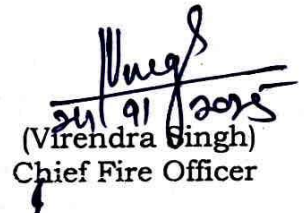 (Virendra Singh)
Chief Fire Officer